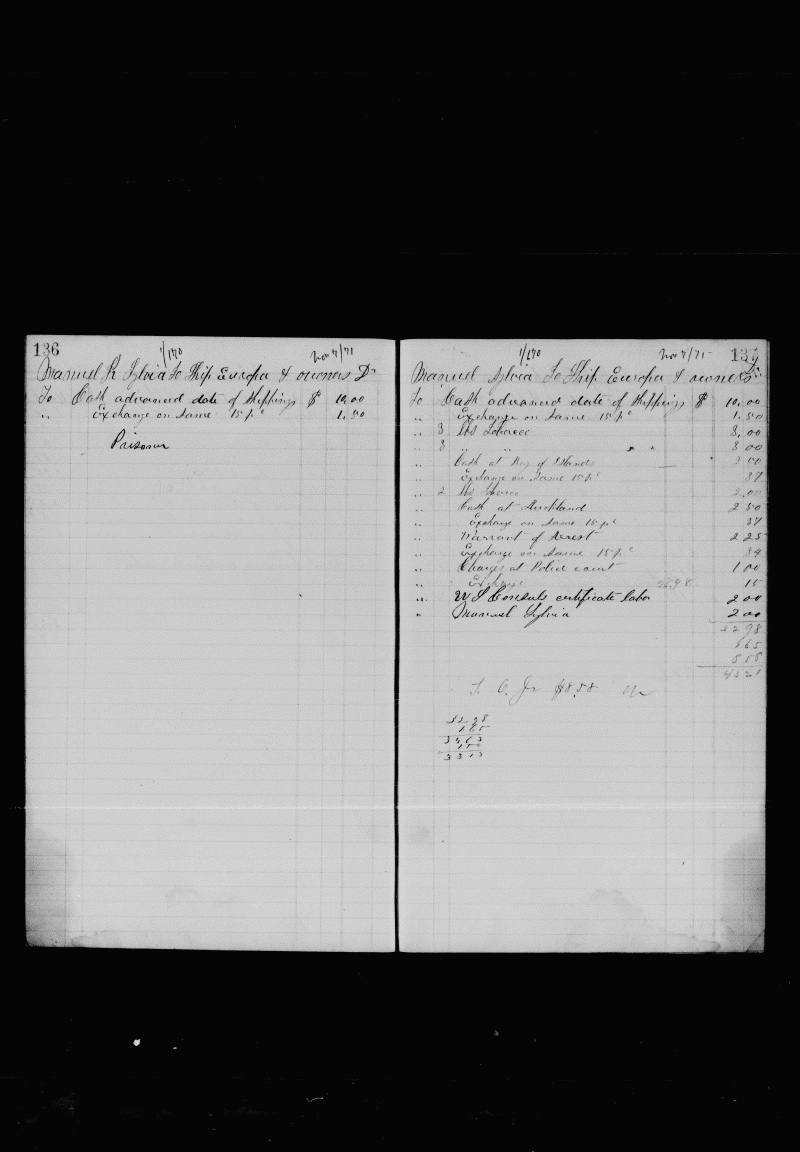 136
1/170 Nov 7/71
Manuel R Sylvia To Ship Europa & owners Dr
To Cash advanced date of Shippings $ 10,00
" Exchange on Same 15 pc 1,50
Prisoner
137
1/170 Nov 7/71
Manuel Sylvia To Ship Europa & owners Dr
To Cash advanced date of Shippings $ 10,00
" Exchange on Same 15 pc 1,50
" 3 lbs Tobacco 3,00
" " " " "
" Cash at Bay of Islands
" Exchange on Same 15 pc 37
" 2 lbs Tobacco 2,00
" Cash at Auckland 2 50
" Exchange on Same 15 pc 37
" Warrant of Arrest 2 25
" Exchange on Same 15 pc 34
" Charges at Police court 1 00
" Exchange 15
" U S Consuls certificate labor 2 00
" Manuel Sylvia 2 00
32 98
6 65
5 58
45 21
$8.58
32 98
1 65
34 63
1 50
33 13